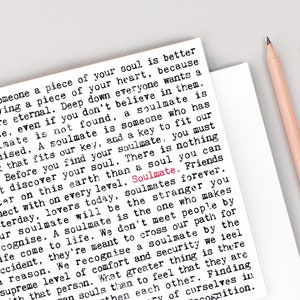 omeone a piece of your soul is better
ving a piece of your heart, because
re eternal. Deep down everyone wants a
e, even if you don't believe in them.
mate is not found, a soulmate is
ised. A soulmate is someone who has
that fits our key, and a key to fit our
Before you find your soulmate, you must
discover your soul. There is nothing
er on this earth than a soul you can
nect with on every level. Soulmate. Friends
terday, lovers today, soulmates forever.
ur soulmate will be the stranger you
cognise. A soulmate is the one who makes
fe come to life. We don't meet people by
ccident, they're meant to cross our path for
reason. We recognise a soulmate by the
upreme level of comfort and security we feel
ith that person. What greater thing is there
man souls than to feel that they are
each other. Finding
of ourselves in
ecognition.